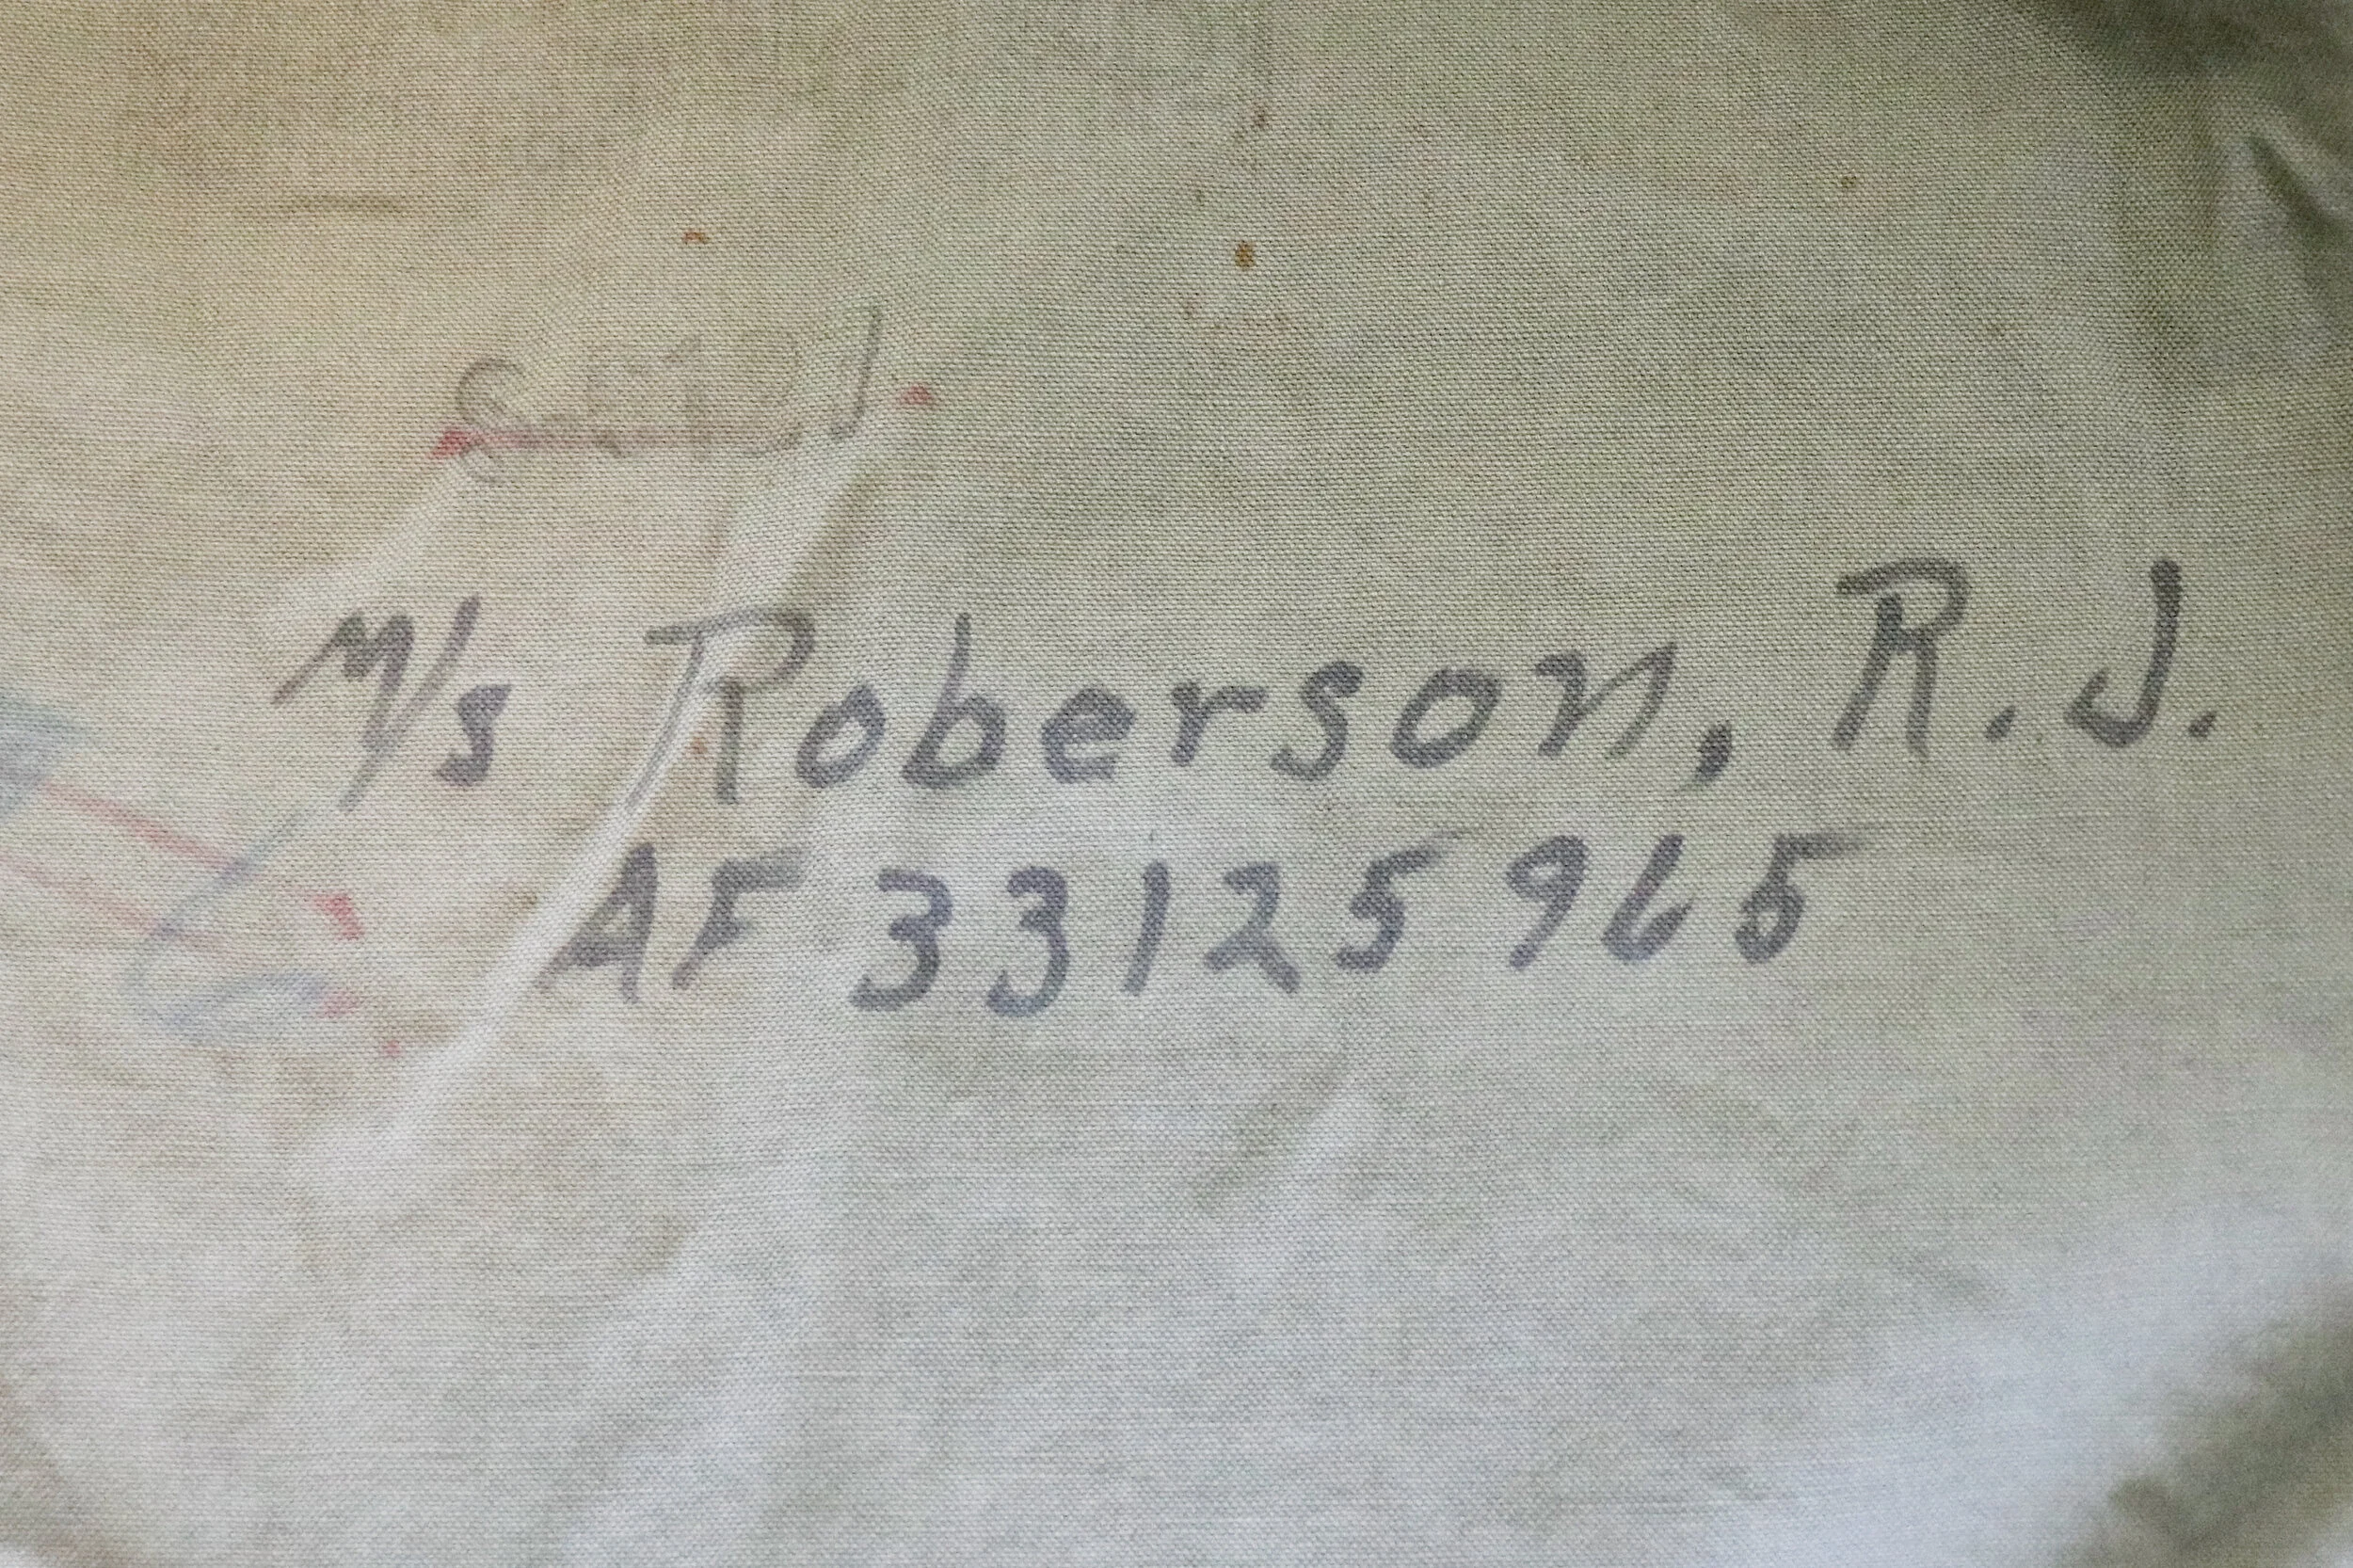 M/s Roberson, R.J.
AF 33125965